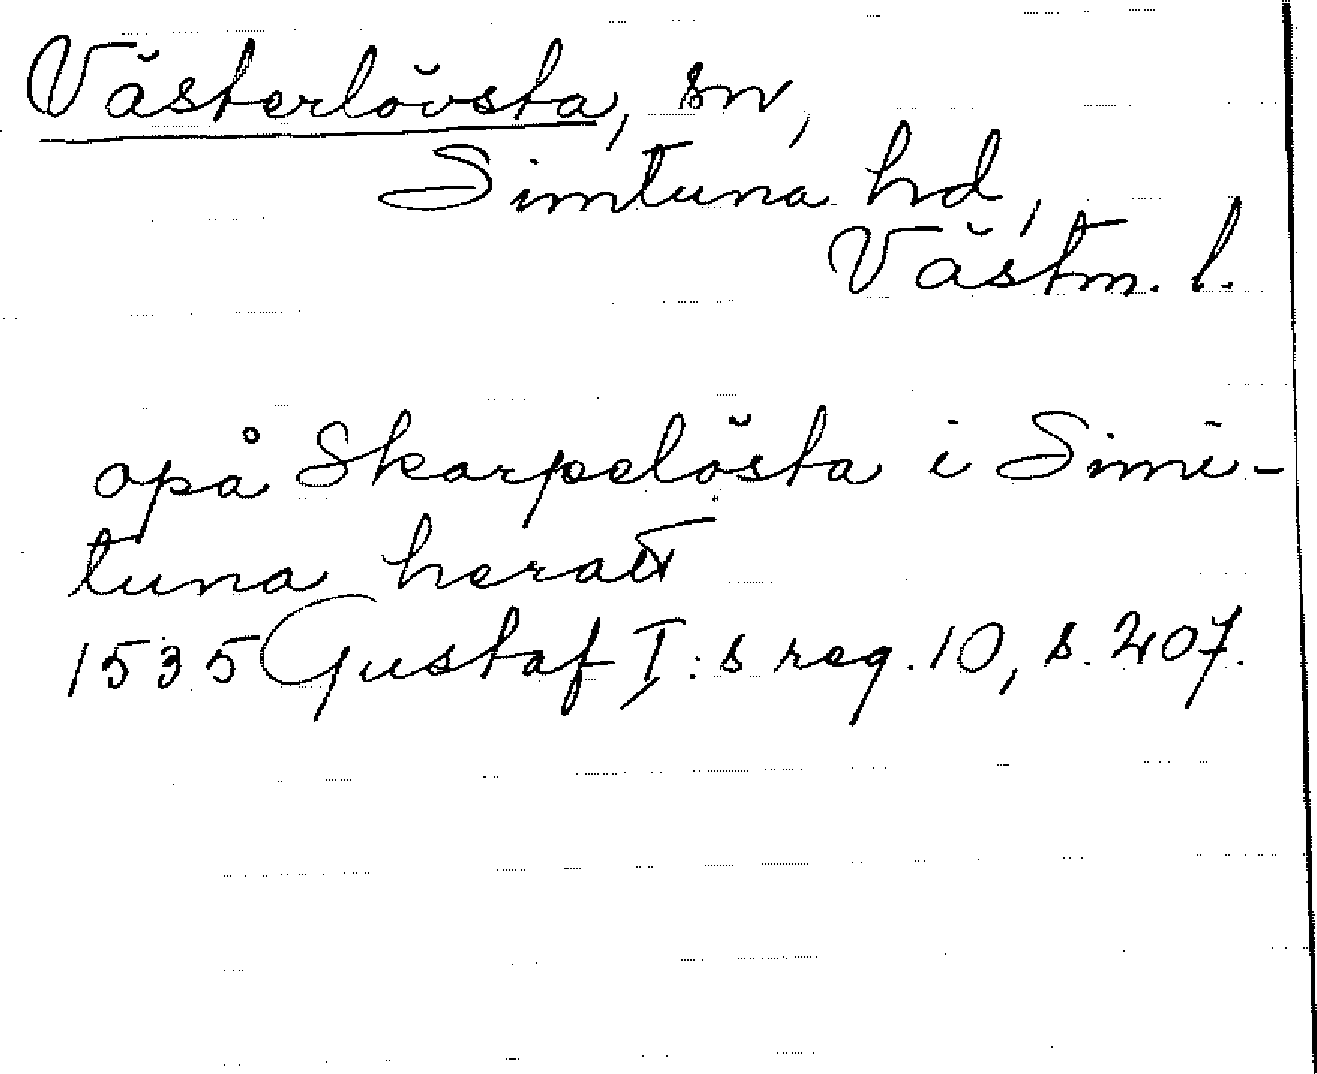 Västerlövsta, sn,
Simtuna hd,
Västm. l.
opå Skarpelösta i Simi-
tuna heratt
1535 Gustaf I:s reg. 10, s. 207.